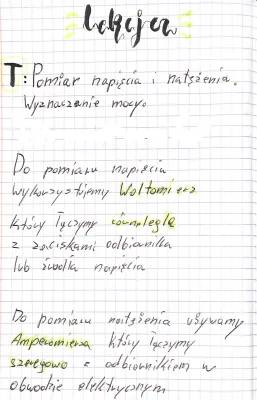 lekcja
T: Pomiar napięcia i natężenia.
Wyznaczanie mocy.
Do pomiaru napięcia
wykorzystujemy Woltomierz
który łączymy równolegle
z zaciskami odbiornika
lub źródła napięcia
Do pomiaru natężenia używamy
Amperomierza który łączymy
szeregowo z odbiornikiem w
obwodzie elektrycznym